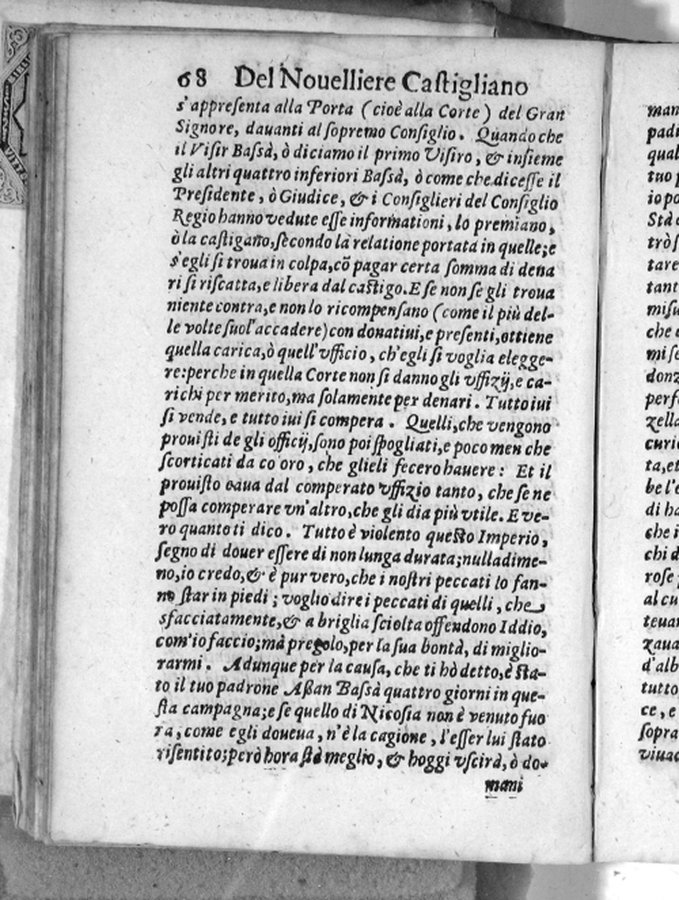 68 Del Nouelliere Castigliano
s'appresenta alla Porta (cioè alla Corte) del Gran
Signore, dauanti al sopremo Consiglio. Quando che
il Visir Bassà, ò diciamo il primo Visiro, & insieme
gli altri quattro inferiori Bassà, ò come che dicesse il
Presidente, ò Giudice, & i Consiglieri del Consiglio
Regio hanno vedute esse informationi, lo premiano,
ò la castigano, secondo la relatione portata in quelle; e
s'egli si troua in colpa, cõ pagar certa somma di dena
ri si riscatta, e libera dal castigo. E se non se gli troua
niente contra, e non lo ricompensano (come il più del-
le volte suol'accadere) con donatiui, e presenti, ottiene
quella carica, ò quell'vfficio, ch'egli si voglia elegge-
re: perche in quella Corte non si danno gli vffizij, e ca-
richi per merito, ma solamente per denari. Tutto iui
si vende, e tutto iui si compera. Quelli, che vengono
prouisti de gli officij, sono poi spogliati, e poco men che
scorticati da co oro, che glieli fecero hauere: Et il
prouisto caua dal comperato vffizio tanto, che se ne
possa comperare vn'altro, che gli dia più vtile. E ve-
ro quanto ti dico. Tutto è violento questo Imperio,
segno di douer essere di non lunga durata; nulladime-
no, io credo, & è pur vero, che i nostri peccati lo fan-
no star in piedi; voglio dire i peccati di quelli, che
sfacciatamente, & a briglia sciolta offendono Iddio,
com'io faccio; mà pregolo, per la sua bontà, di miglio-
rarmi. Adunque per la causa, che ti hò detto, è sta-
to il tuo padrone Assan Bassà quattro giorni in que-
sta campagna; e se quello di Nicosia non è venuto fuo
ra, come egli doueua, n'è la cagione, l'esser lui stato
risentito; però hora stà meglio, & hoggi vscirà, ò do-
mani
man
padi
qual
tuo p
io po
Stà c
trò s
tare
tant
misu
che
mi se
donz
perf
zella
curi
ta, et
be l'e
di ha
che i
chi d
rose
al cu
teuar
zaua
d'alb
tutto
ce, e
sopra
viuac